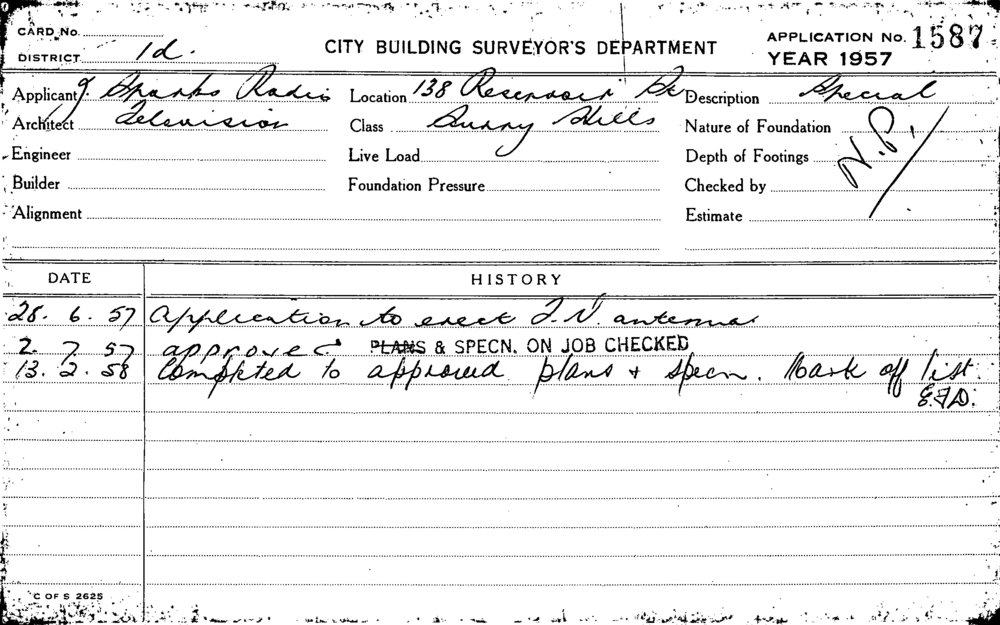 CARD No.
DISTRICT 1d.
CITY BUILDING SURVEYOR'S DEPARTMENT
APPLICATION No. 1587
YEAR 1957
Applicant J. Sparks Radio
Architect Television
Engineer
Builder
Alignment
Location 138 Reservoir St
Class Surry Hills
Live Load
Foundation Pressure
Description Special
Nature of Foundation
Depth of Footings
Checked by
Estimate
N.P.
DATE HISTORY
28. 6. 57 Application to erect T.V. antenna
2. 7. 57 approved PLANS & SPECN. ON JOB CHECKED
13. 2. 58 Completed to approved plans + specn. Mark off list.
C OF S 2625